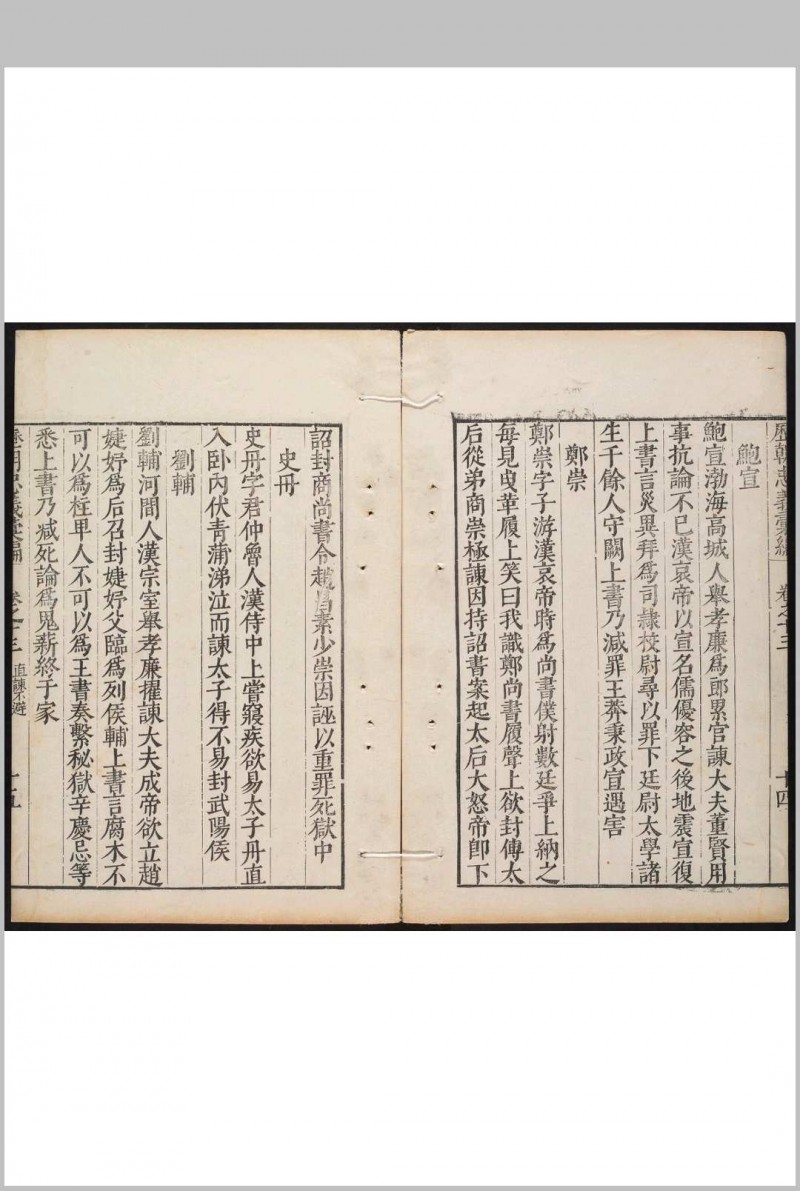 歷朝忠義彙編 卷之十三 十四
鮑宣
鮑宣渤海高城人舉孝廉爲郎累官諫大夫董賢用
事抗論不已漢哀帝以宣名儒優容之後地震宣復
上書言災異拜爲司隸校尉尋以罪下廷尉太學諸
生千餘人守闕上書乃減罪王莽秉政宣遇害
鄭崇
鄭崇字子游漢哀帝時爲尚書僕射數廷爭上納之
每見曳革履上笑曰我識鄭尚書履聲上欲封傅太
后從弟商崇極諫因持詔書案起太后大怒帝卽下
詔封商尚書令趙昌素少崇因誣以重罪死獄中
史冊
史冊字君仲魯人漢侍中上嘗寢疾欲易太子冊直
入臥內伏青蒲涕泣而諫太子得不易封武陽侯
劉輔
劉輔河間人漢宗室舉孝廉擢諫大夫成帝欲立趙
婕妤爲后召封婕妤父臨爲列侯輔上書言腐木不
可以爲柱卑人不可以爲王書奏繫秘獄辛慶忌等
悉上書乃減死論爲鬼薪終于家
歷朝忠義彙編 卷之十三 直諫不避 十五